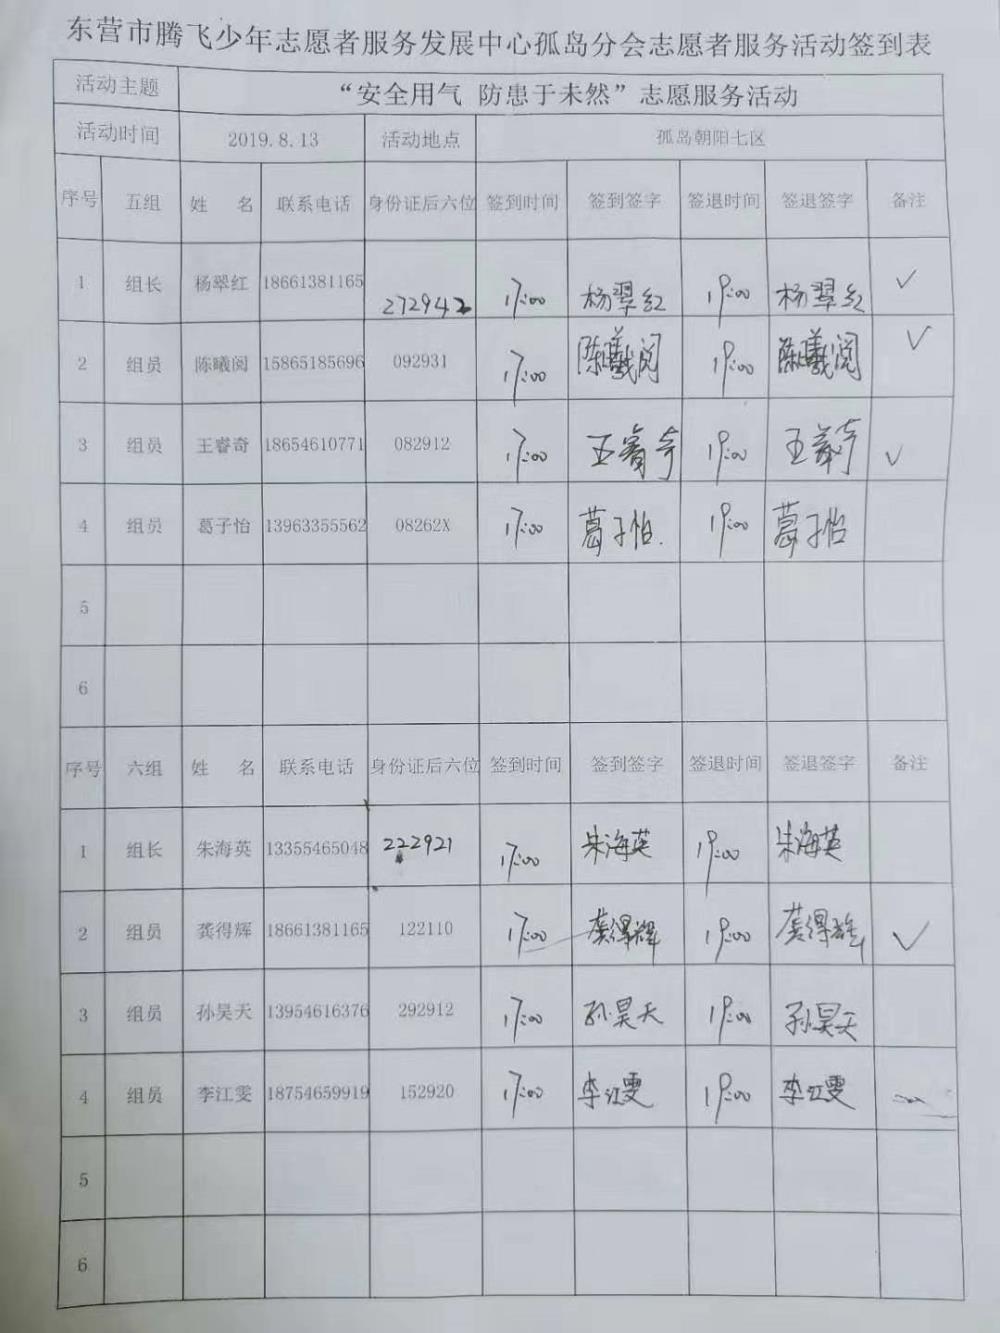 东营市腾飞少年志愿者服务发展中心孤岛分会志愿者服务活动签到表
活动主题 “安全用气 防患于未然”志愿服务活动
活动时间 2019.8.13 活动地点 孤岛朝阳七区
序号 五组 姓 名 联系电话 身份证后六位 签到时间 签到签字 签退时间 签退签字 备注
1 组长 杨翠红 18661381165 272942 17:00 杨翠红 19:00 杨翠红 ✓
2 组员 陈曦阅 15865185696 092931 17:00 陈曦阅 19:00 陈曦阅 ✓
3 组员 王睿奇 18654610771 082912 17:00 王睿奇 19:00 王睿奇 ✓
4 组员 葛子怡 13963355562 08262X 17:00 葛子怡 19:00 葛子怡
5
6
序号 六组 姓 名 联系电话 身份证后六位 签到时间 签到签字 签退时间 签退签字 备注
1 组长 朱海英 13355465048 222921 17:00 朱海英 19:00 朱海英
2 组员 龚得辉 18661381165 122110 17:00 龚得辉 19:00 龚得辉 ✓
3 组员 孙昊天 13954616376 292912 17:00 孙昊天 19:00 孙昊天
4 组员 李江雯 18754659919 152920 17:00 李江雯 19:00 李江雯
5
6